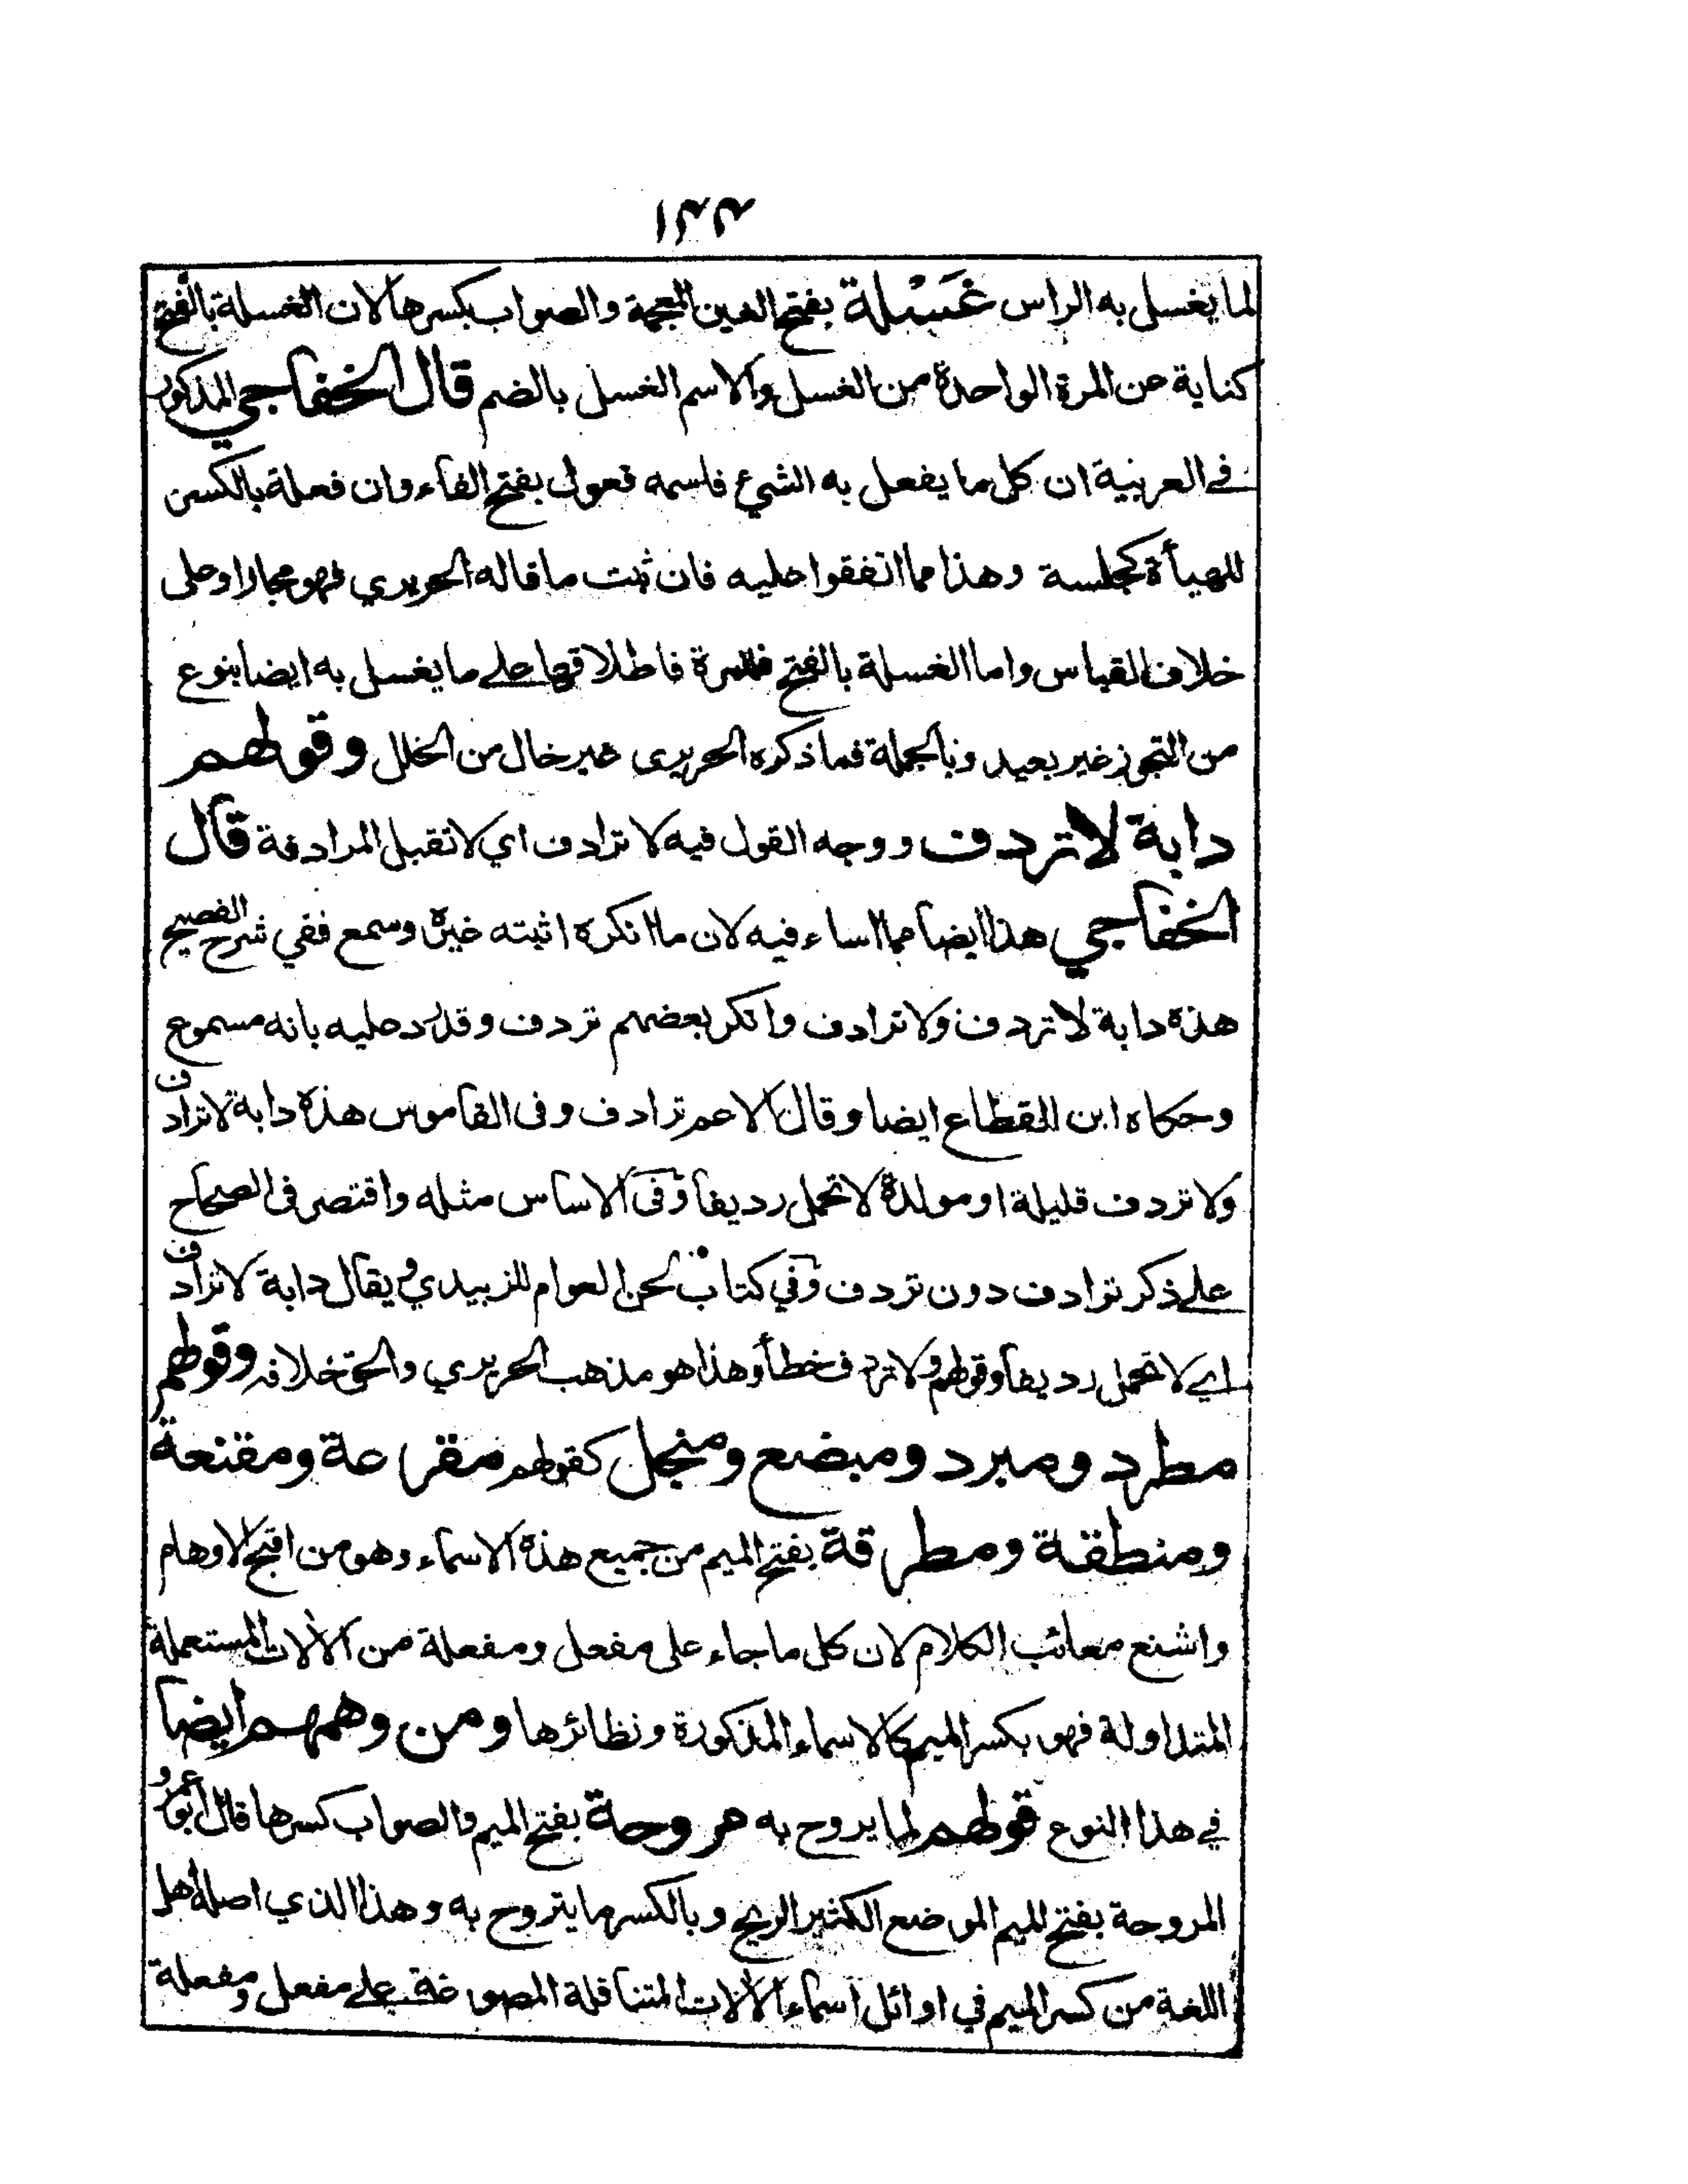 لما يغسل به الراس غَسْلة بفتح الغين المعجمة والصواب بكسرها لان الغسلة بالفتح
كناية عن المرة الواحدة من الغسل والاسم الغسل بالضم قال الخفاجي المذكور
في العربية ان كل ما يفعل به الشيء فاسمه فعول بفتح الفاء وان فعلة بالكسر
للهيأة كجلسة وهذا مما اتفقوا عليه فان ثبت ما قاله الحريري فهو مجاز او على
خلاف القياس واما الغسلة بالفتح فللمرة فاطلاقها على ما يغسل به ايضا بنوع
من التجوز غير بعيد وبالجملة فما ذكره الحريرى غير خال من الخلل وقولهم
دابة لا تردف ووجه القول فيه لا ترادف اي لا تقبل المرادفة قال
الخفاجي هذا ايضا مما اساء فيه لان ما انكره اثبته غيره وسمع ففي شرح الفصيح
هذه دابة لا تردف ولا ترادف وانكر بعضهم تردف وقد رد عليه بانه مسموع
وحكاه ابن القطاع ايضا وقال الاعم ترادف وفى القاموس هذه دابة لا ترادف
ولا تردف قليلة او مولدة لا تحمل رديفا وفى الاساس مثله واقتصر فى الصحاح
على ذكر ترادف دون تردف وفي كتاب لحن العوام للزبيدي ويقال دابة لا ترادف
اى لا تحمل رديفا وقولهم ولا تردف خطأ وهذا هو مذهب الحريري والحق خلافه وقولهم
مطرد ومبرد ومبضع ومنجل كقولهم مقرعة ومقنعة
ومنطقة ومطرقة بفتح الميم من جميع هذه الاسماء وهو من اقبح الاوهام
واشنع معائب الكلام لان كل ما جاء على مفعل ومفعلة من الآلات المستعملة
المتداولة فهو بكسر الميم كالاسماء المذكورة ونظائرها ومن وهمهم ايضا
في هذا النوع قولهم لما يروح به مروحة بفتح الميم والصواب كسرها قال ابو عمرو
المروحة بفتح الميم الموضع الكثير الريح وبالكسر ما يتروح به وهذا الذي اصله اهل
اللغة من كسر الميم في اوائل اسماء الآلات المتناقلة المصوغة على مفعل ومفعلة